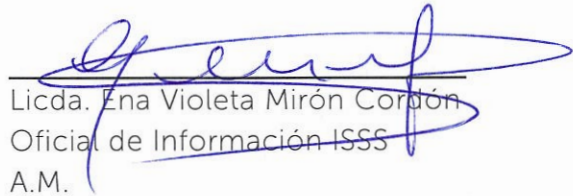 Licda. Ena Violeta Mirón Cordón
Oficial de Información ISSS
A.M.